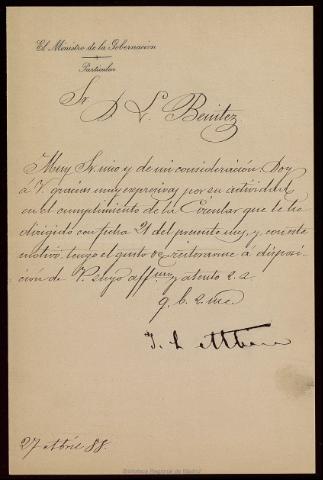 El Ministro de la Gobernación
Particular
Sr. D. L. Benitez
Muy Sr. mio y de mi consideración: Doy
á V. gracias muy expresivas por su actividad
en el cumplimiento de la Circular que le he
dirigido con fecha 21 del presente mes, y con este
motivo tengo el gusto de reiterarme á disposi-
ción de V. suyo affmo y atento s. s.
q. b. s. m.
27 Abril 88.
Biblioteca Regional de Madrid